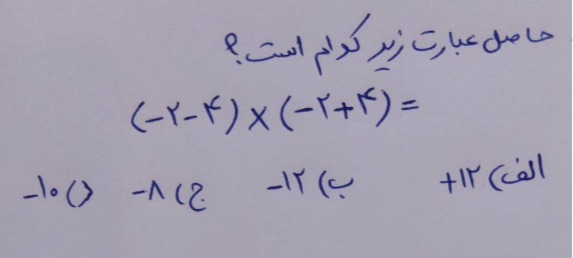 حاصل عبارت زیر کدام است؟
(-۲-۴) × (-۲+۴) =
الف) +۱۲ ب) -۱۲ ج) -۸ د) -۱۰